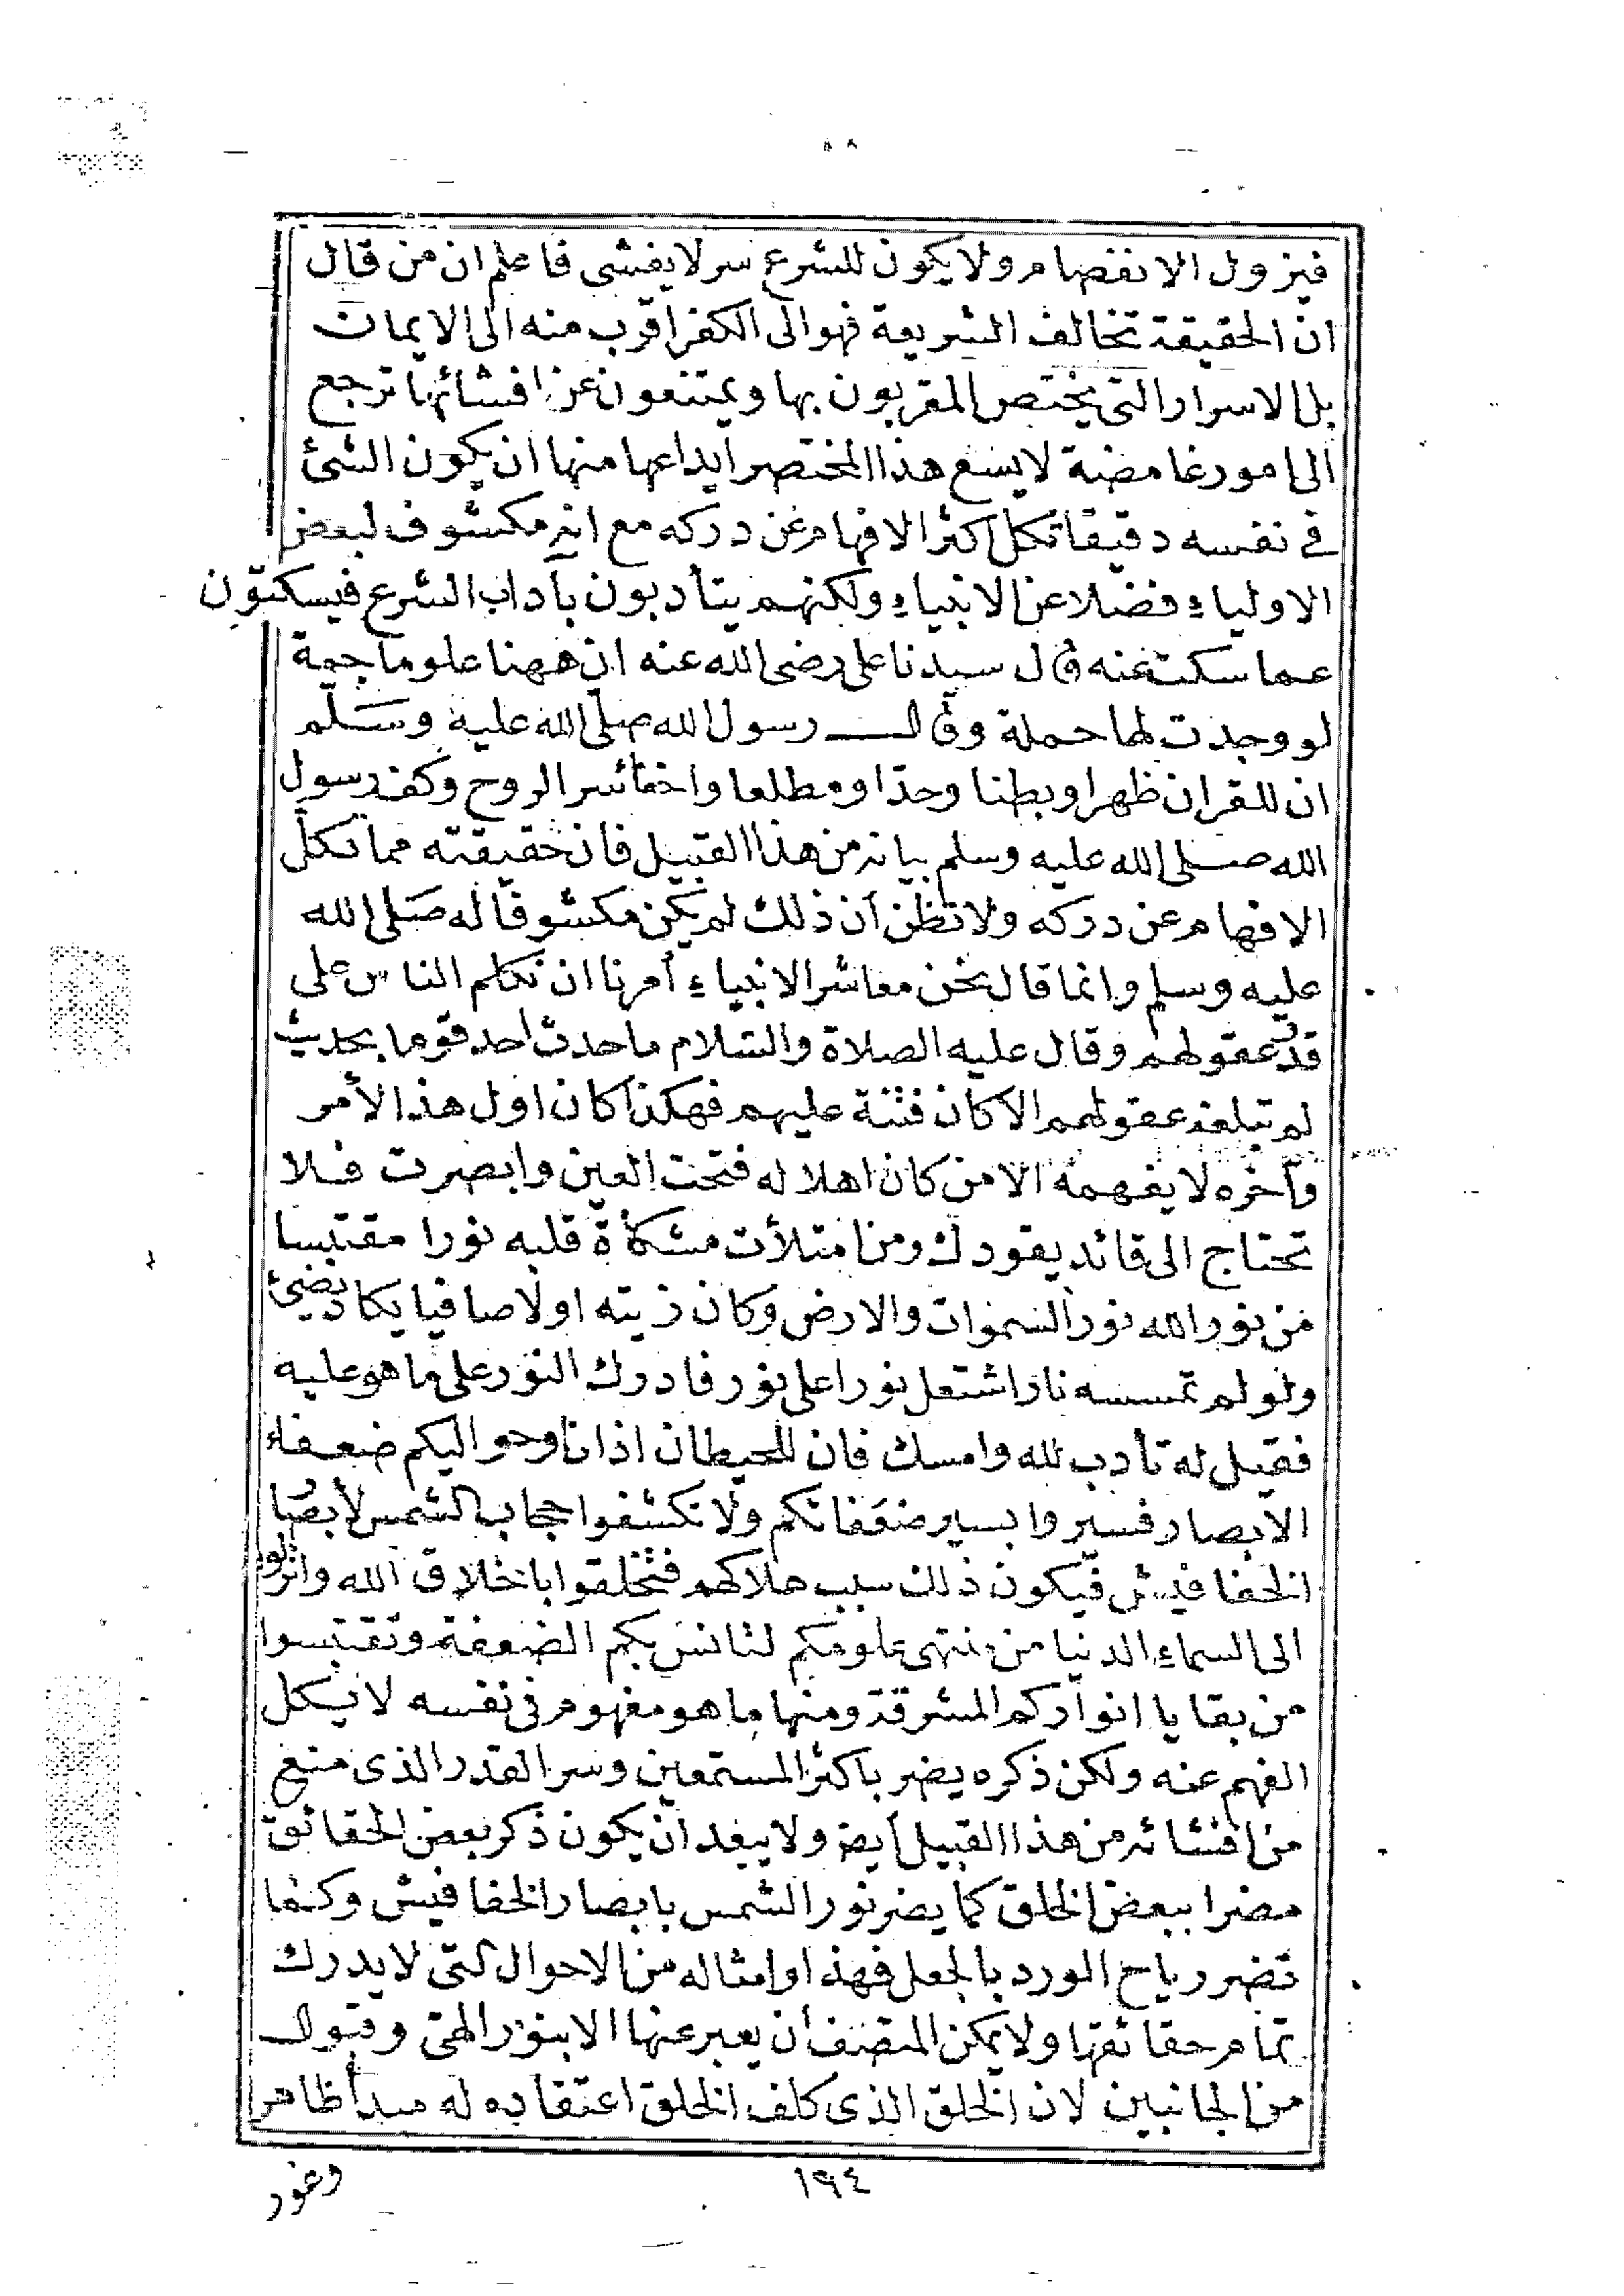 فيزول الانفصام ولا يكون للشرع سر لا يفشى فاعلم ان من قال
ان الحقيقة تخالف الشريعة فهو الى الكفر اقرب منه الى الايمان
بل الاسرار التى يختص المقربون بها ويمتنعون عن افشائها ترجع
الى امور غامضة لا يسع هذا المختصر ايداعها منها ان يكون الشئ
فى نفسه دقيقا تكل اكثر الافهام عن دركه مع انه مكشوف لبعض
الاولياء فضلا عن الانبياء ولكنهم يتأدبون بآداب الشرع فيسكتون
عما سكت عنه قال سيدنا على رضى الله عنه ان ههنا علوما جمة
لو وجدت لها حملة وقال رسول الله صلى الله عليه وسَلّم
ان للقران ظهرا وبطنا وحدّا ومطلعا واخفا سر الروح وكف رسول
الله صلى الله عليه وسلم بيانه من هذا القبيل فان حقيقته مما تكلّ
الافهام عن دركه ولا تظن أن ذلك لم يكن مكشوفا له صَلى الله
عليه وسلم وانما قال نحن معاشر الانبياء أمرنا ان نكلم الناس على
قدر عقولهم وقال عليه الصلاة والسّلام ما حدث احد قوما بحديث
لم تبلغه عقولهم الا كان فتنة عليهم فهكذا كان اول هذا الأمر
وآخره لا يفهمه الا من كان اهلا له فتحت العين وابصرت فلا
تحتاج الى قائد يقودك ومن امتلأت مشكاة قلبه نورا مقتبسا
من نور الله نور السموات والارض وكان زيته اولا صافيا يكاد يضئ
ولو لم تمسسه نار اشتعل نورا على نور فادرك النور على ما هو عليه
فقيل له تأدب لله وامسك فان للحيطان اذانا وحواليكم ضعفاء
الابصار فسيروا بسير ضعفائكم ولا تكشفوا حجاب الشمس لأبصار
الخفافيش فيكون ذلك سبب هلاكهم فتخلقوا باخلاق الله وانزلوا
الى السماء الدنيا من منتهى علومكم لتانس بكم الضعفة وتقتبسوا
من بقايا انواركم المشرقة ومنها ما هو مفهوم فى نفسه لا يكل
الفهم عنه ولكن ذكره يضر باكثر المستمعين وسر القدر الذى منع
من افشائه من هذا القبيل أيضا ولا يبعد ان يكون ذكر بعض الحقائق
مضرا ببعض الخلق كما يضر نور الشمس بابصار الخفافيش وكما
تضر رياح الورد بالجعل فهذا وامثاله من الاحوال التى لا يدرك
تمام حقائقها ولا يمكن المتصف أن يعبر عنها الا بنور الهى وقبول
من الجانبين لان الخلق الذى كلف الخلق اعتقاده له مبدأ ظاهر
١٩٤
وغور